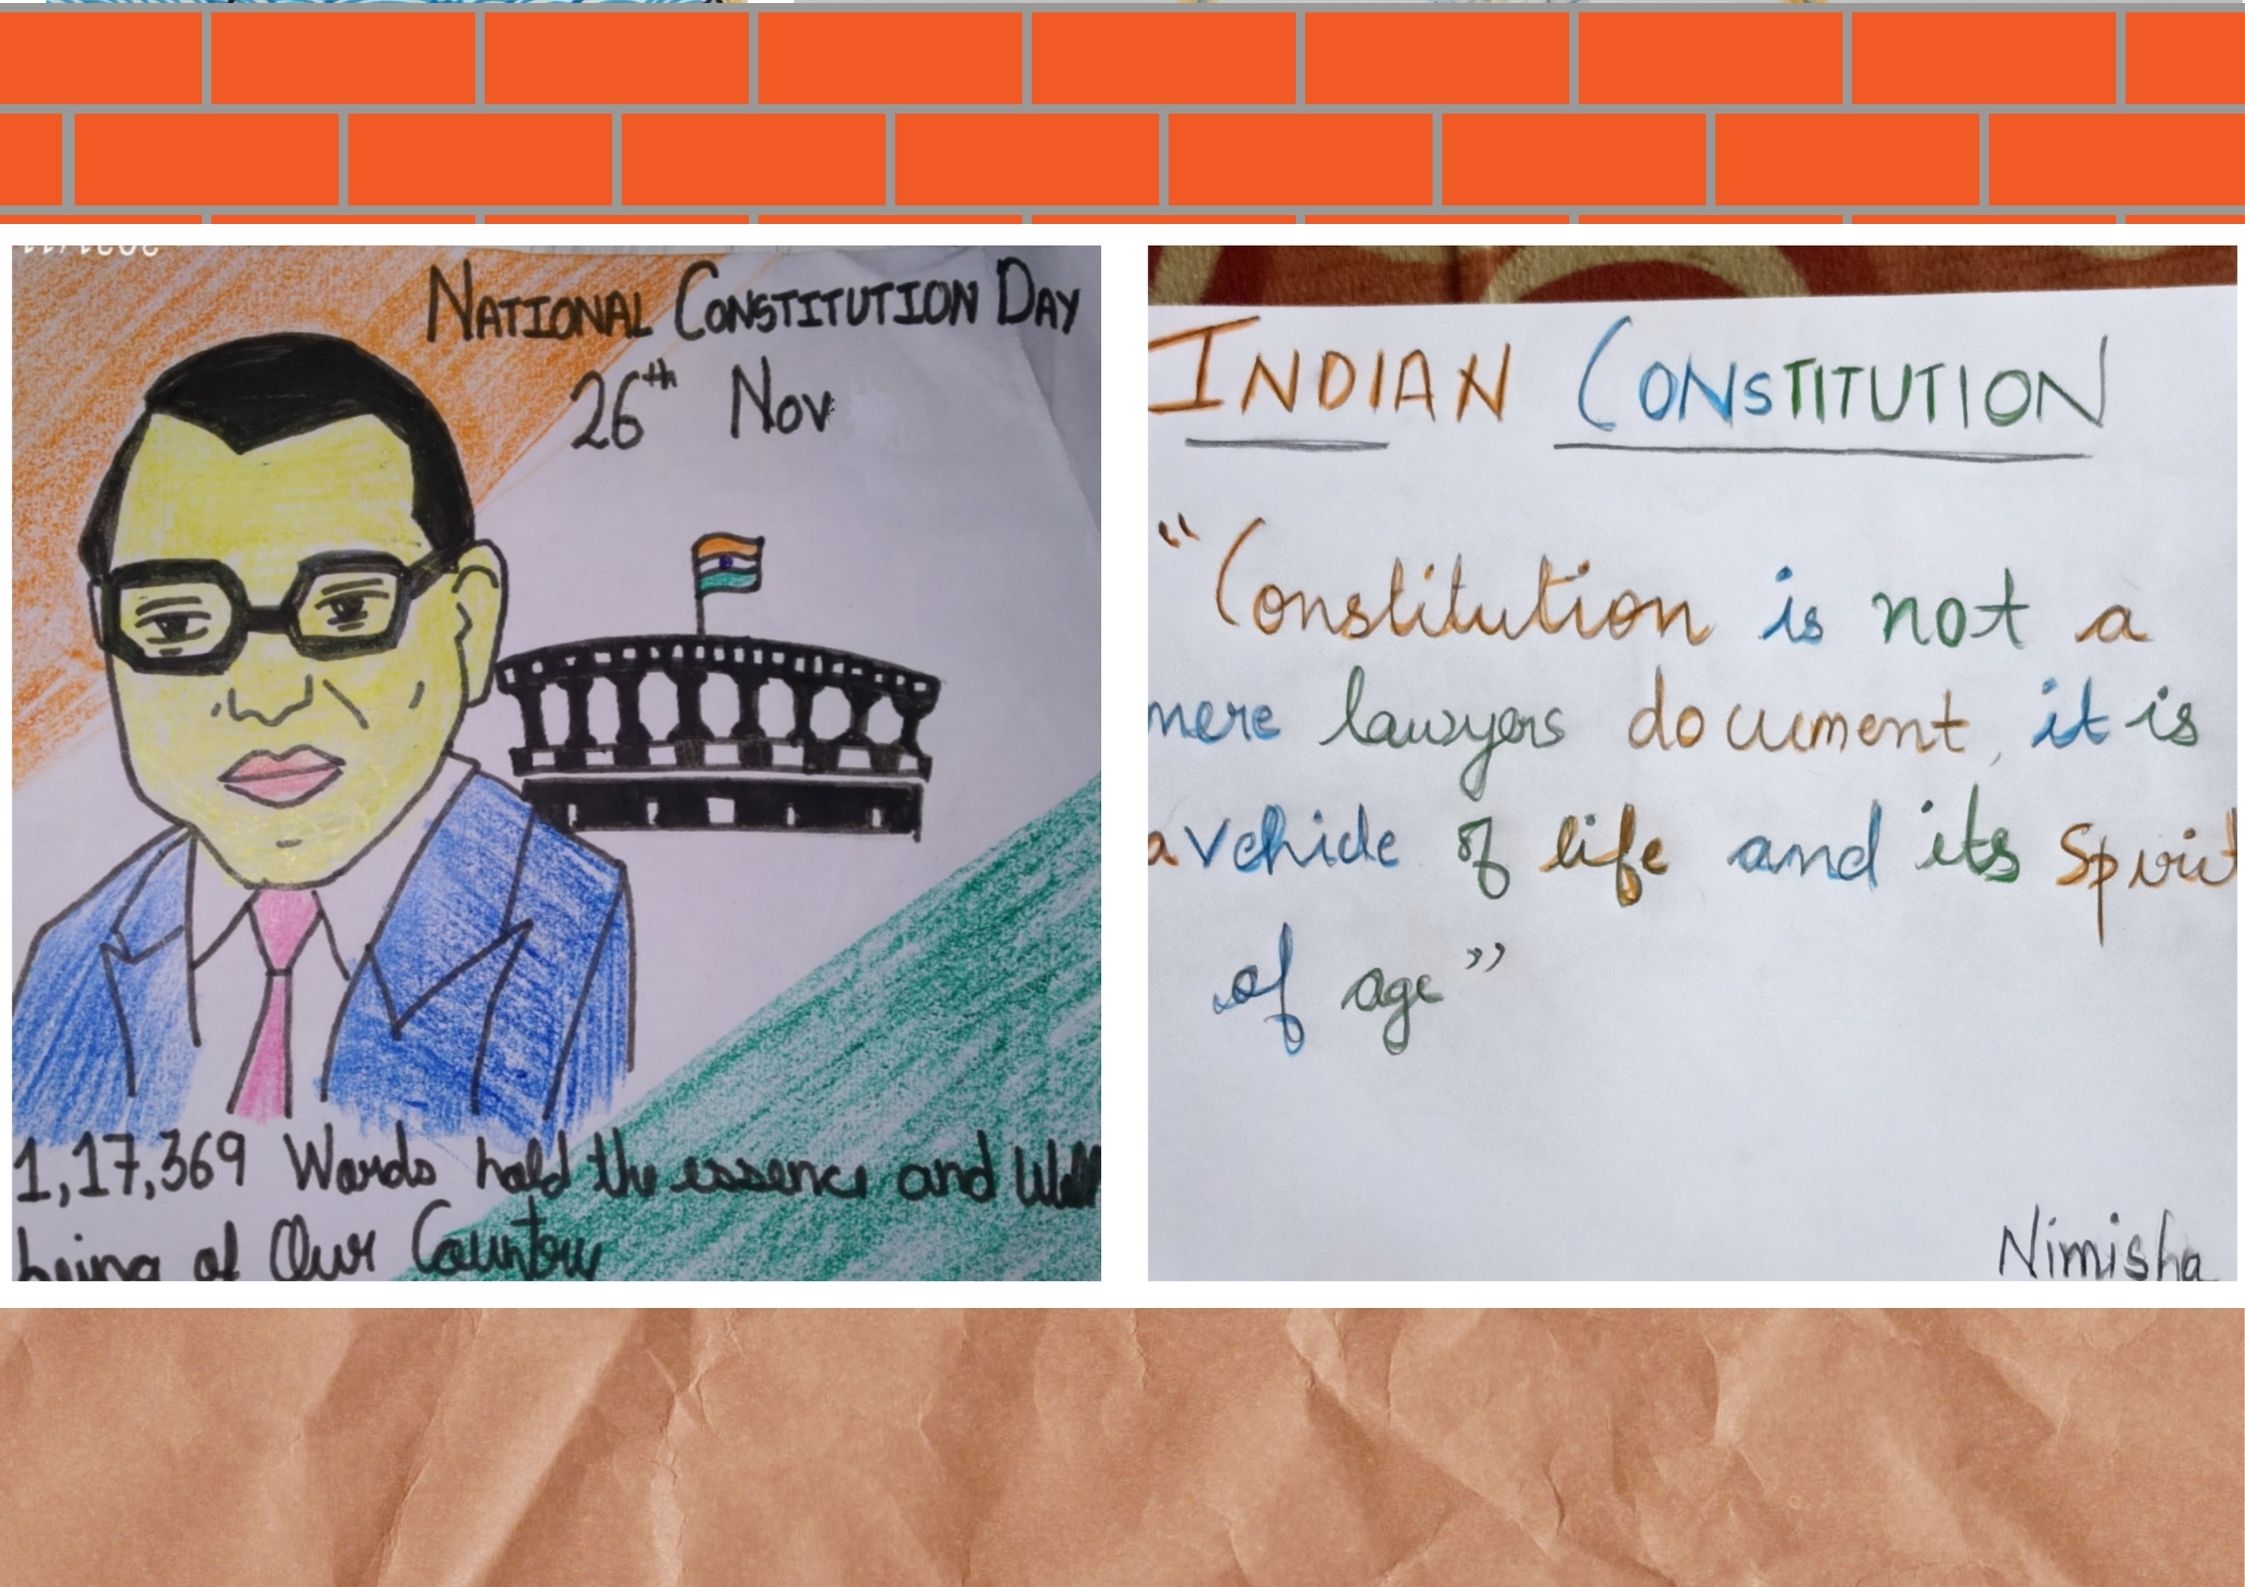 NATIONAL CONSTITUTION DAY
26th Nov
1,17,369 Words hold the essence and Well
being of Our Country
INDIAN CONSTITUTION
"Constitution is not a
mere lawyers document, it is
a vehicle of life and its spirit
of age"
Nimisha